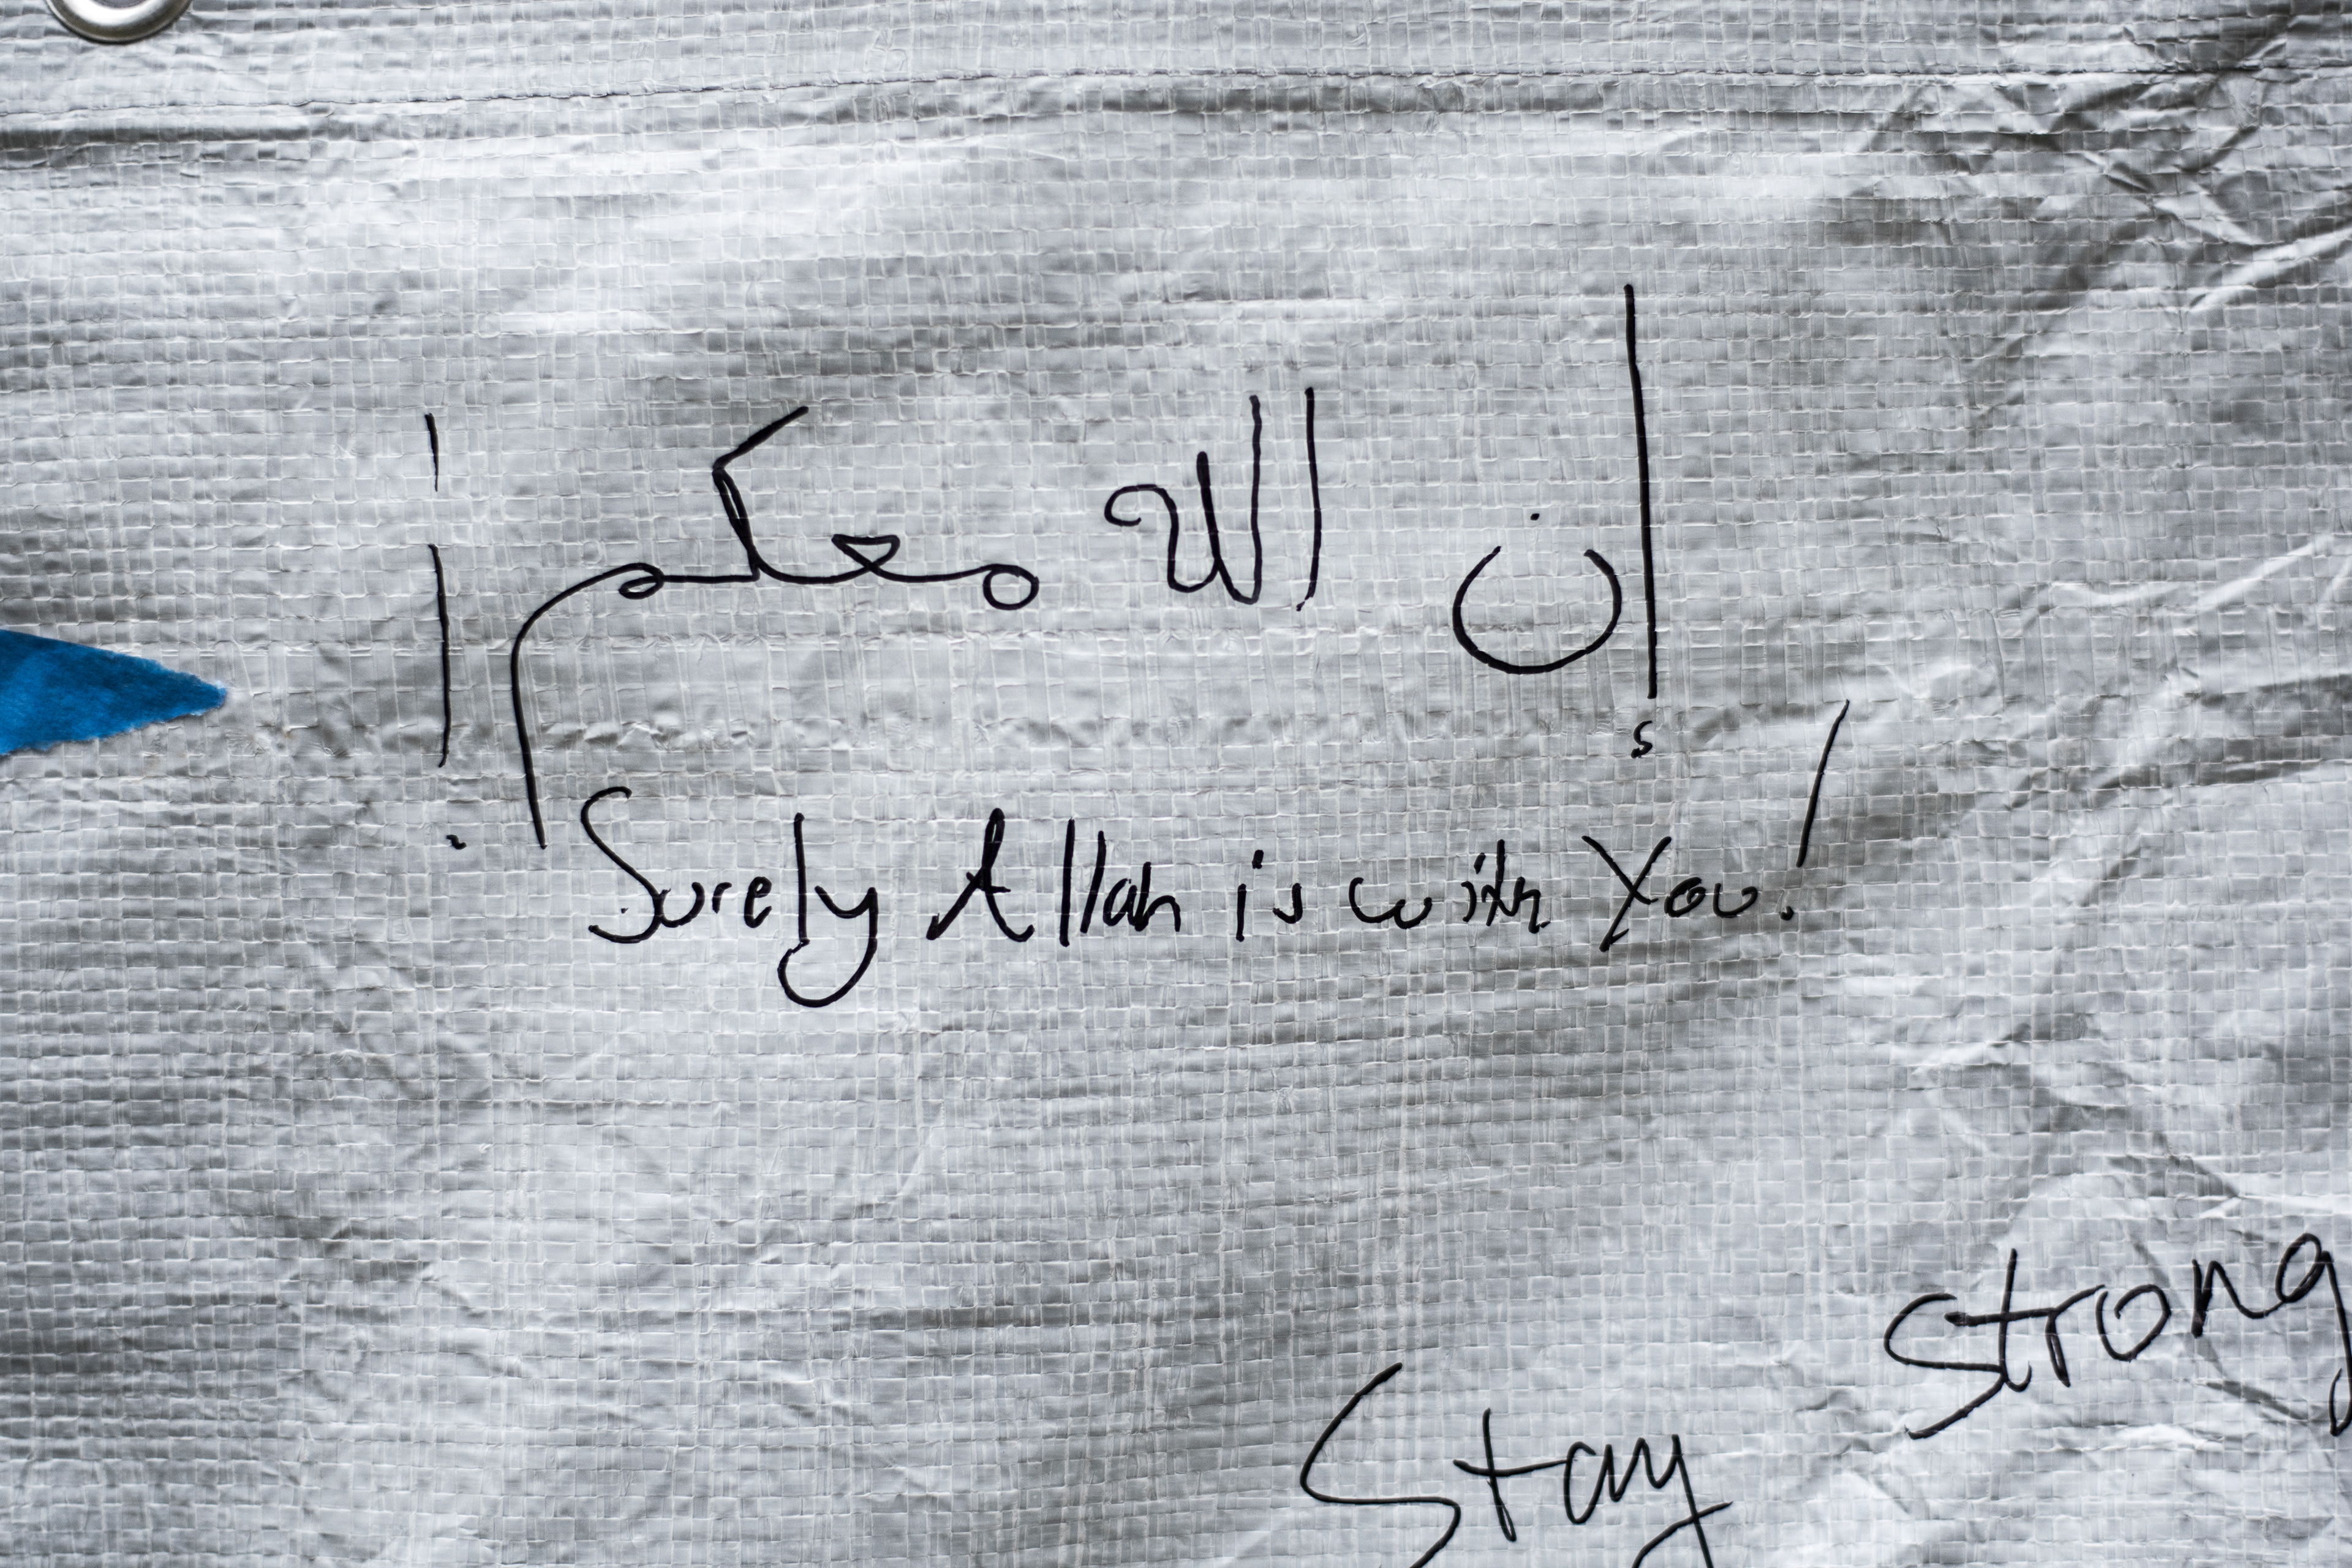 إن الله معكم!
Surely Allah is with You!
Stay strong